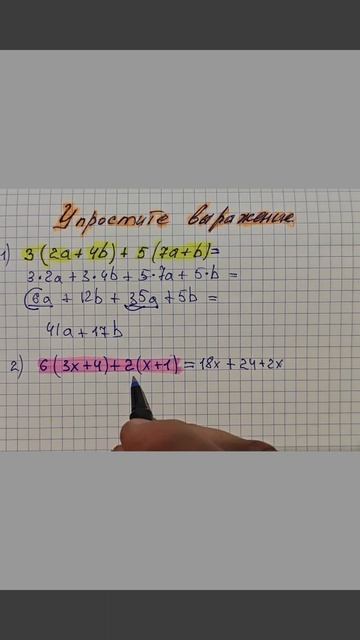 Упростите выражение
1) 3(2a+4b)+5(7a+b)=
3·2a+3·4b+5·7a+5·b=
6a+12b+35a+5b=
41a+17b
2) 6(3x+4)+2(x+1)=18x+24+2x